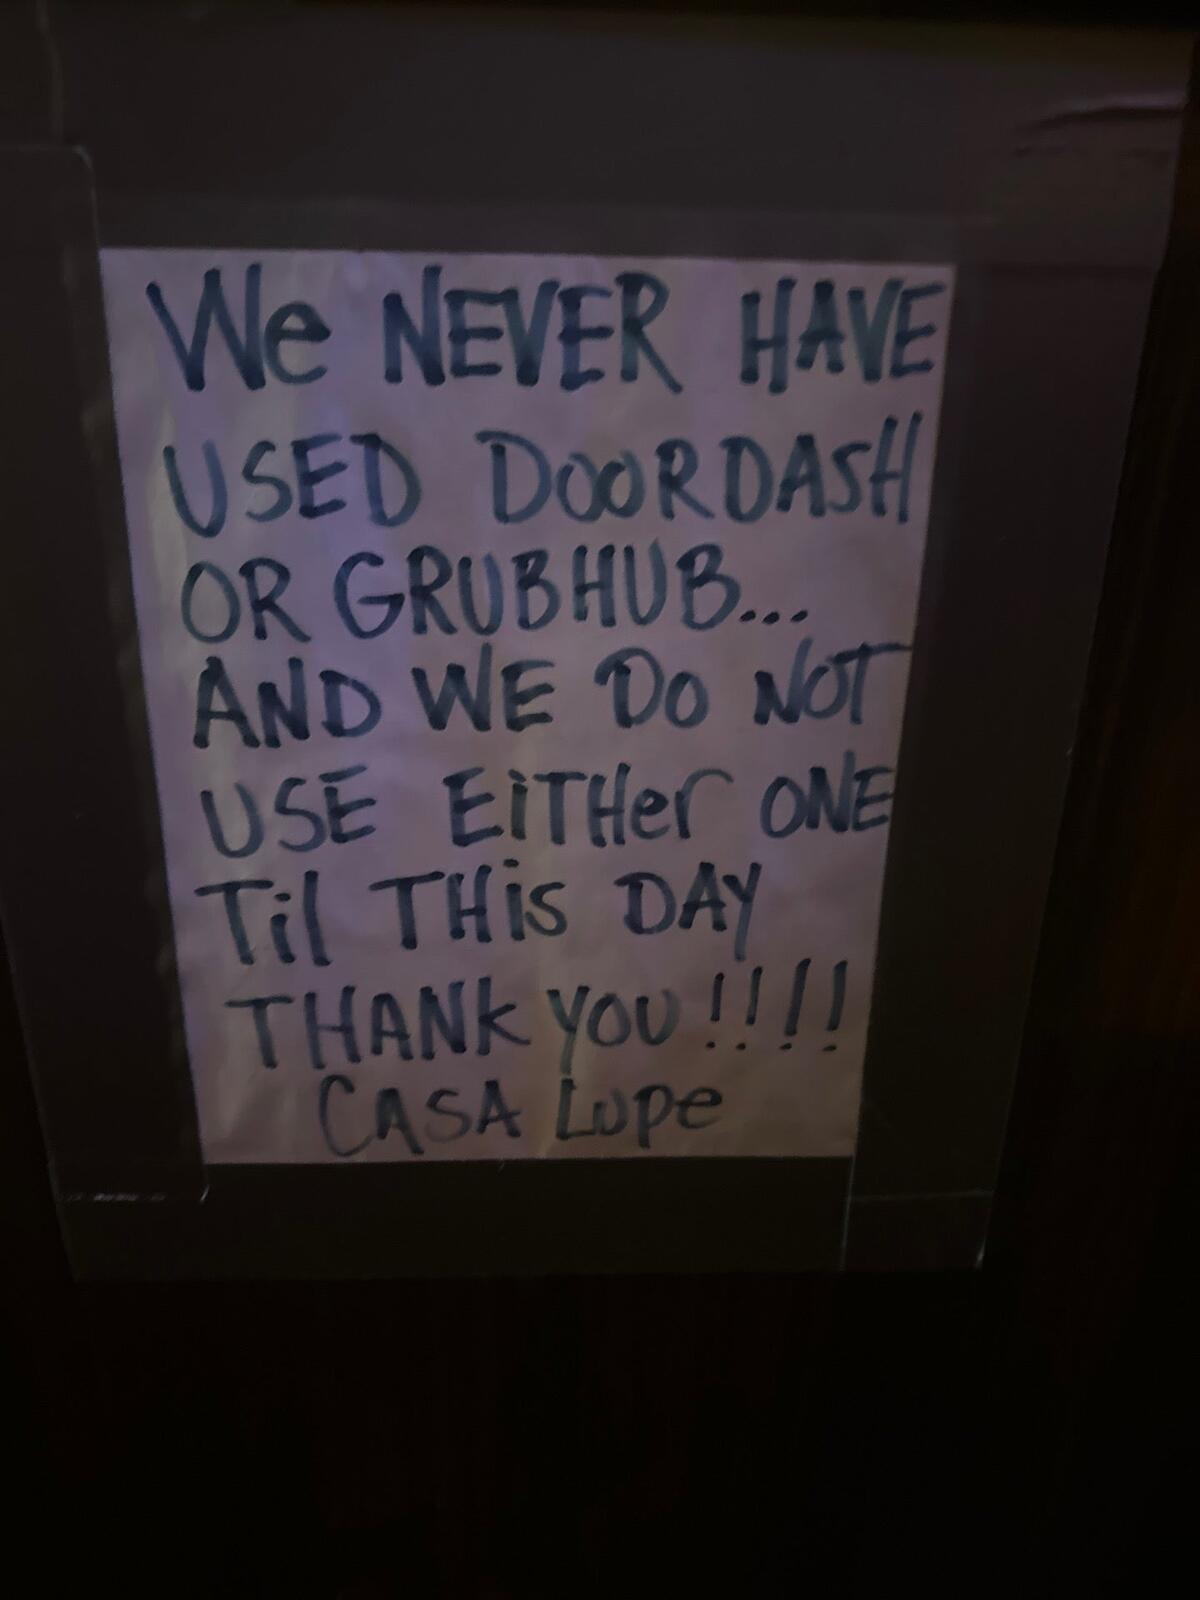 We NEVER HAVE
USED DOORDASH
OR GRUBHUB...
AND WE DO NOT
USE EiTHer ONE
Til THis DAY
THANK YOU!!!!
CASA Lupe